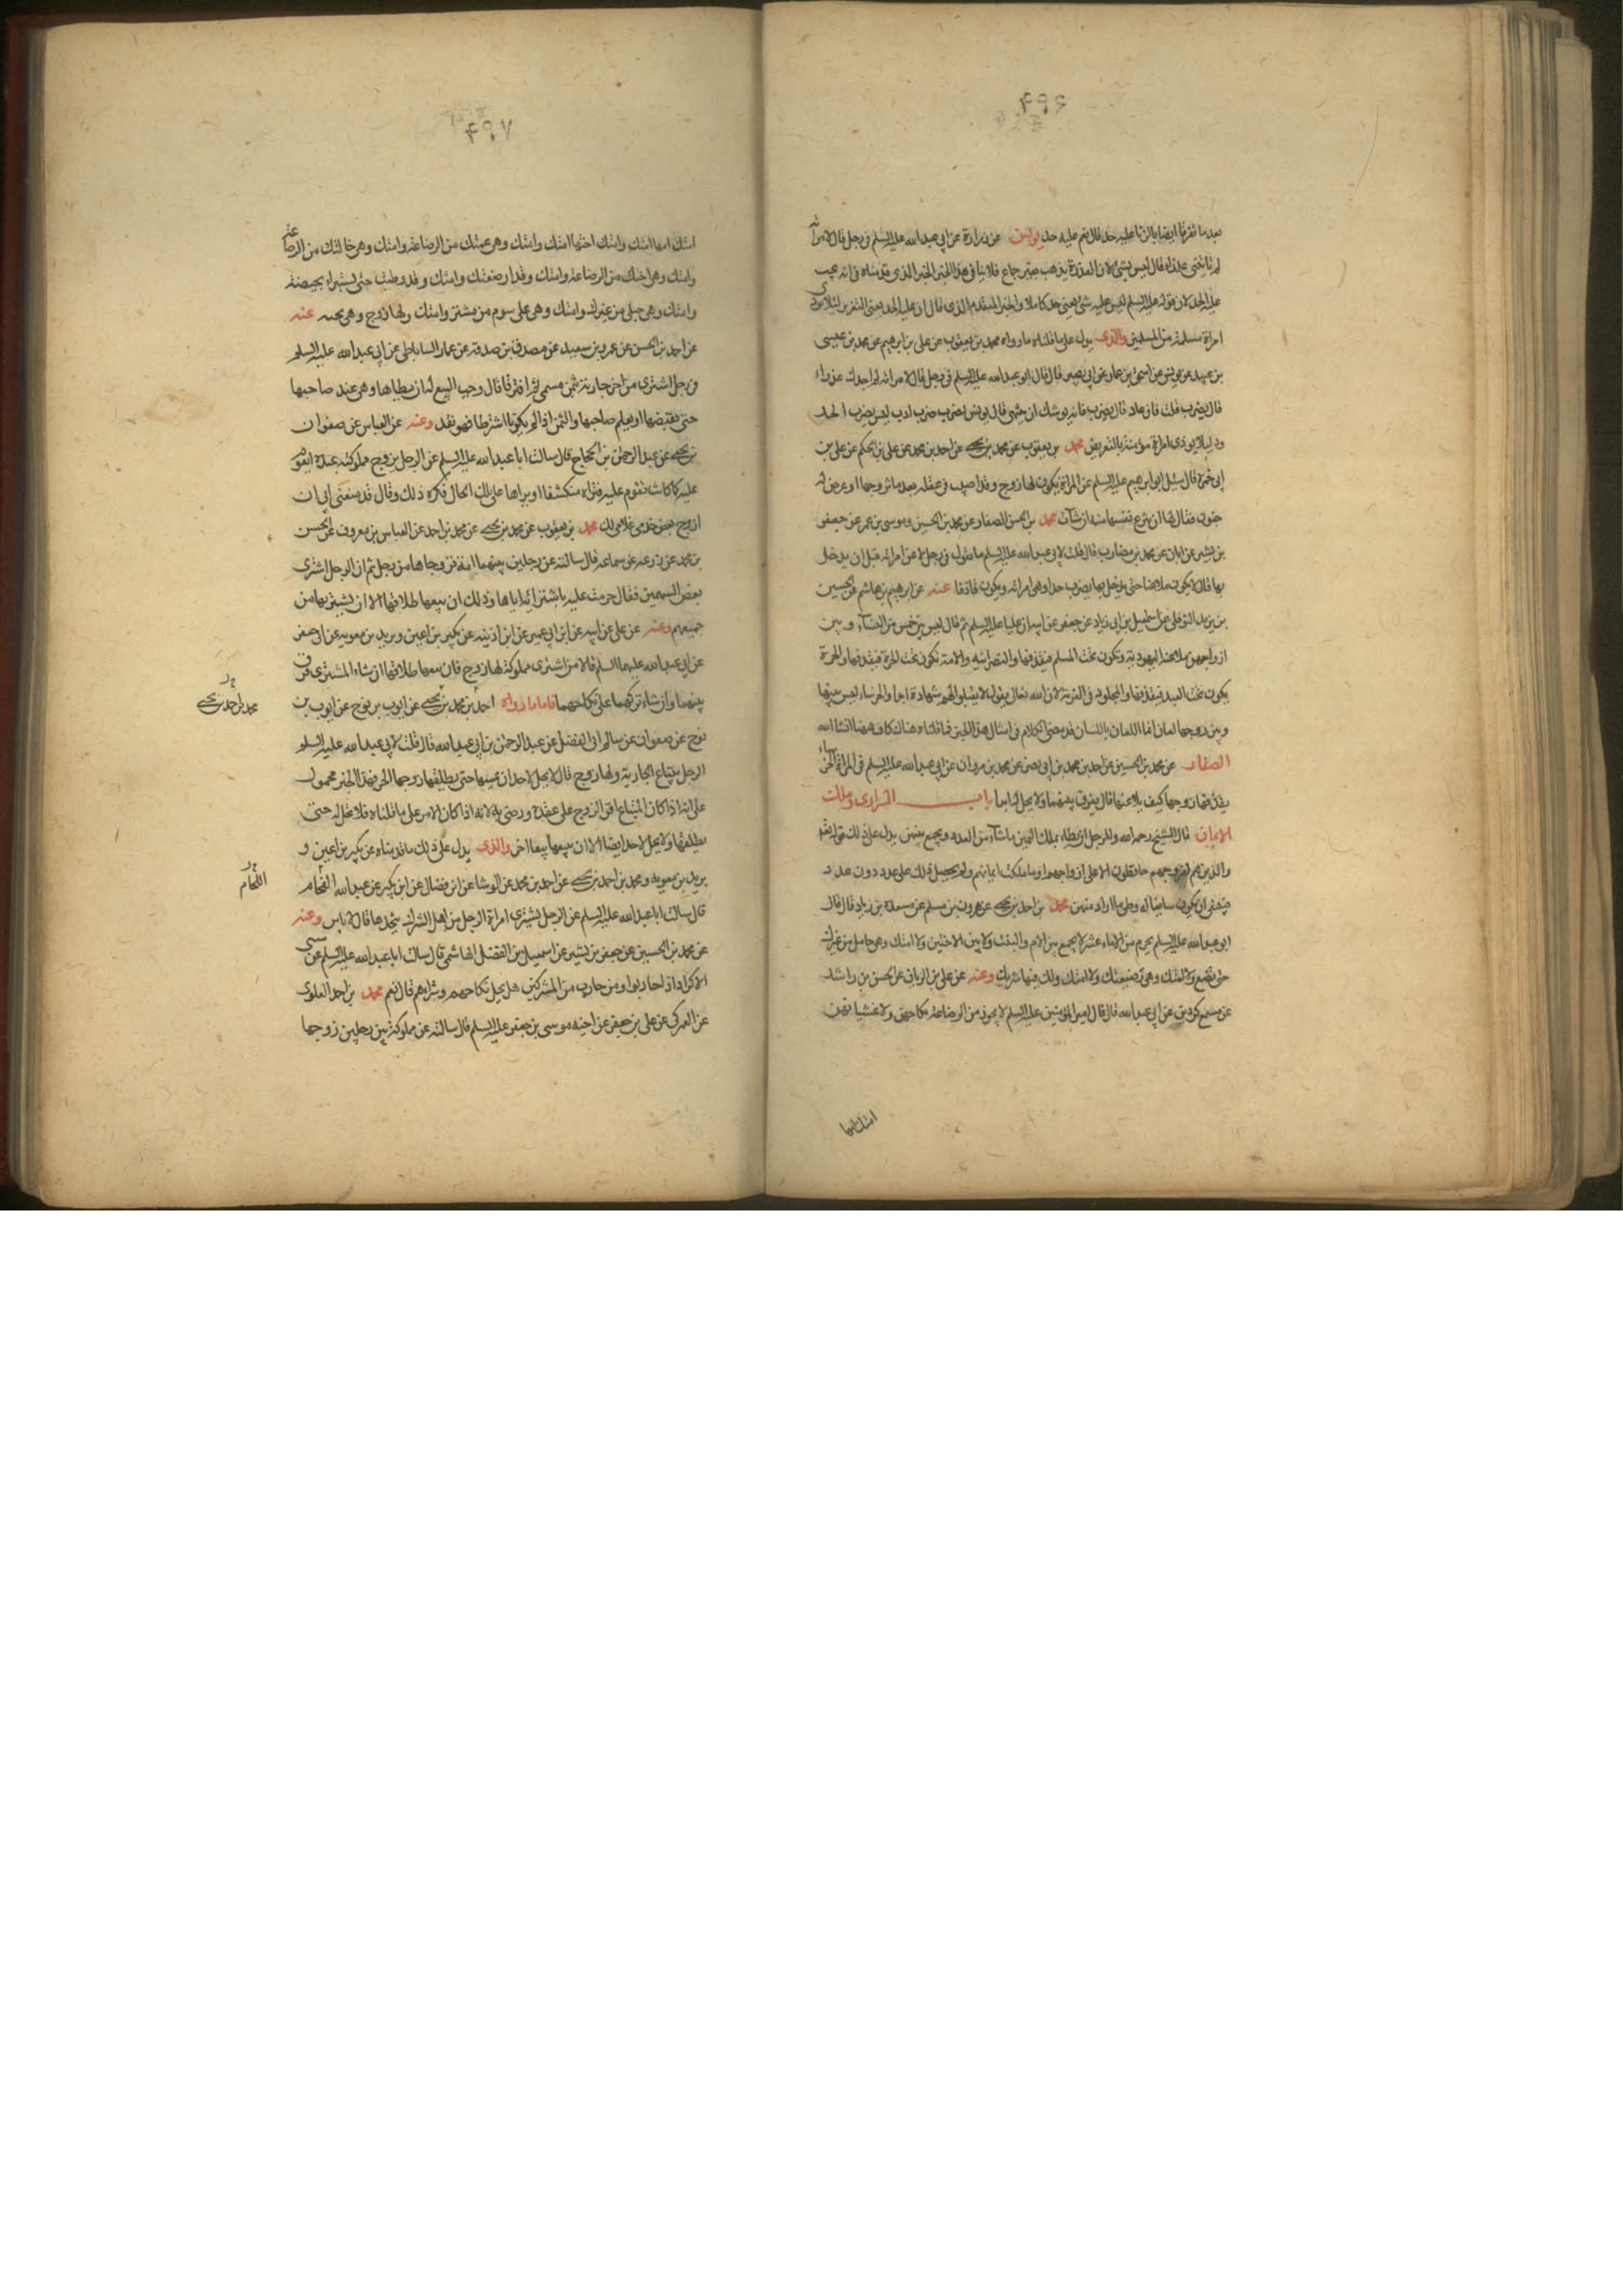 ۴۹۶
بعد ما تفرقا ايضا بالزنا عليه حد قال نعم عليه حد يونس عن زرارة عن ابي عبد الله عليه السلم في رجل قال لامراته
لم تاتني عذراء قال ليس بشئ لان العذرة تذهب بغير جماع فلا ينافي هذا الخبر الخبر الذي قدمناه في انه يجب
عليه الحد لان قوله عليه السلم ليس عليه شئ يعني حد كاملا والخبر المتقدم الذي قال ان عليه الحد يعني التعزير لئلا يوذي
امراة مسلمة من المسلمين والذي يدل على ما قلناه ما رواه محمد بن يعقوب عن علي بن ابرهيم عن محمد بن عيسى
بن عبيد عن يونس عن اسحق بن عمار عن ابي بصير قال قال ابو عبد الله عليه السلم في رجل قال لامراته لم اجدك عذراء
قال يضرب قلت فان عاد قال يضرب فانه يوشك ان ينتهي قال يونس يضرب ضرب ادب ليس يضرب الحد
ود ليلا يوذي امراة مؤمنة بالتعريض محمد بن يعقوب عن محمد بن يحيى عن احمد بن محمد عن علي بن الحكم عن علي بن
ابي حمزة قال سئل ابو ابرهيم عليه السلم عن المراة يكون لها زوج وقد اصيب في عقله بعد ما تزوجها او عرض له
جنون فقال لها ان تنزع نفسها منه ان شآت محمد بن الحسن الصفار عن محمد بن الحسين وموسى بن عمر عن جعفر
بن بشير عن ابان عن محمد بن مضارب قال قلت لابي عبد الله عليه السلم ما تقول في رجل لاعن امراته قبل ان يدخل
بها قال لا يكون ملاعنا حتى يدخل بها يضرب حدا وهي امراته ويكون قاذفا عنه عن ابرهيم بن هاشم عن الحسين
بن يزيد النوفلي عن اسمعيل بن ابي زياد عن جعفر عن ابيه ان عليا عليه السلم قال ليس بين خمس من النسآء وبين
ازواجهن ملاعنة اليهودية تكون تحت المسلم فيقذفها والنصرانية والامة تكون تحت الحر فيقذفها والحرة
يكون تحت العبد فيقذفها والمجلود في الفرية لان الله تعالى يقول لا يقبلوا لهم شهادة ابدا والخرساء ليس بينها
وبين زوجها لعان انما اللعان باللسان قد مضى الكلام في امثال هذا الخبر فما قلناه هناك كاف ههنا انشا الله
الصفار عن محمد بن الحسين عن احمد بن محمد بن ابي نصر عن محمد بن مروان عن ابي عبد الله عليه السلم في المراة الخرساء
يقذفها زوجها كيف يلاعنها قال يفرق بينهما ولا يحل له ابدا باب السراري وملك
الايمان قال الشيخ رحمه الله وللرجل ان يطاء بملك اليمين ما شآء من العدد ويجمع بينهن يدل على ذلك قوله تع
والذين هم لفروجهم حافظون الا على ازواجهم او ما ملكت ايمانهم ولم يحصل ذلك على عدد دون عدد
فينبغي ان يكون سايغا له وطي ما اراد منهن محمد بن احمد بن يحيى عن هرون بن مسلم عن مسعدة بن زياد قال قال
ابو عبد الله عليه السلم يحرم من الاماء عشر لا يجمع بين الام والبنت ولا بين الاختين ولا امتك وهي حامل من غيرك
حتى تضع ولا امتك وهي رضيعتك ولا امتك ولك فيها شريك وعنه عن علي بن الريان عن الحسن بن راشد
عن مسمع كردين عن ابي عبد الله قال قال امير المؤمنين عليه السلم لا يجوز من الرضاعة نكاحهن ولا غشيانهن
امتك امها
۴۹۷
امتك امها امتك وامتك اختها امتك وامتك وهي عمتك من الرضاعة وامتك وهي خالتك من الرضاعة
وامتك وهي اختك من الرضاعة وامتك وقد ارضعتك وامتك وقد وطئت حتى تستبراء بحيضة
وامتك وهي حبلى من غيرك وامتك وهي على سوم من مشتر وامتك ولها زوج وهي تحته عنه
عن احمد بن الحسن عن عمرو بن سعيد عن مصدق بن صدقة عن عمار الساباطي عن ابي عبد الله عليه السلم
في رجل اشترى من اخر جارية بثمن مسمى ثم افترقا قال وجب البيع له ان يطاها وهي عند صاحبها
حتى يقبضها او يعلم صاحبها والثمن اذا لم يكونا اشترطا فهو نقد وعنه عن العباس عن صفوان
بن يحيى عن عبد الرحمن بن الحجاج قال سالت ابا عبد الله عليه السلم عن الرجل يزوج مملوكته عبده اتقوم
عليه كما كانت تقوم عليه فتراه منكشفا او يراها على تلك الحال فكره ذلك وقال قد منعني ابي ان
ازوج بعض خدمي غلامي لذلك محمد بن يعقوب عن محمد بن يحيى عن محمد بن احمد عن العباس بن معروف عن الحسن
بن محمد عن زرعة عن سماعة قال سالته عن رجلين بينهما امة فزوجاها من رجل ثم ان الرجل اشترى
بعض السهمين فقال حرمت عليه باشترائه اياها وذلك ان بيعها طلاقها الا ان يشتريها من
جميعهم وعنه عن علي عن ابيه عن ابن ابي عمير عن ابن اذينه عن بكير بن اعين وبريد بن معويه عن ابي جعفر
عن ابي عبد الله عليهما السلم قالا من اشترى مملوكة لها زوج فان بيعها طلاقها ان شاء المشتري فرق
بينهما وان شاء تركهما على نكاحهما فاما ما رواه احمد بن محمد بن يحيى عن ايوب بن نوح عن ايوب بن
محمد بن احمد بن يحيى
نوح عن صفوان عن سالم ابي الفضل عن عبد الرحمن بن ابي عبد الله قال قلت لابي عبد الله عليه السلم
الرجل يبتاع الجارية ولها زوج قال لا يحل لاحد ان يمسها حتى يطلقها زوجها الحر فهذا الخبر محمول
على انه اذا كان المبتاع اقر الزوج على عقده ورضي به لانه اذا كان الامر على ما قلناه فلا تحل له حتى
يطلقها ولا يحل لاحد ايضا الا ان يبيعها بيعا اخر والذي يدل على ذلك ما قدمناه عن بكير بن اعين و
بريد بن معويه ومحمد بن احمد بن يحيى عن احمد بن محمد عن الوشا عن ابن فضال عن ابن بكير عن عبد الله الفحام
اللحام
قال سالت ابا عبد الله عليه السلم عن الرجل يشتري امراة الرجل من اهل الشرك يتخذها قال لا باس وعنه
عن محمد بن الحسين عن جعفر بن بشير عن اسمعيل بن الفضل الهاشمي قال سالت ابا عبد الله عليه السلم عن سبي
الاكراد اذا حاربوا ومن حارب من المشركين هل يحل نكاحهم وشراءهم قال نعم محمد بن احمد العلوي
عن العمركي عن علي بن جعفر عن اخيه موسى بن جعفر عليه السلم قال سالته عن مملوكة بين رجلين زوجها